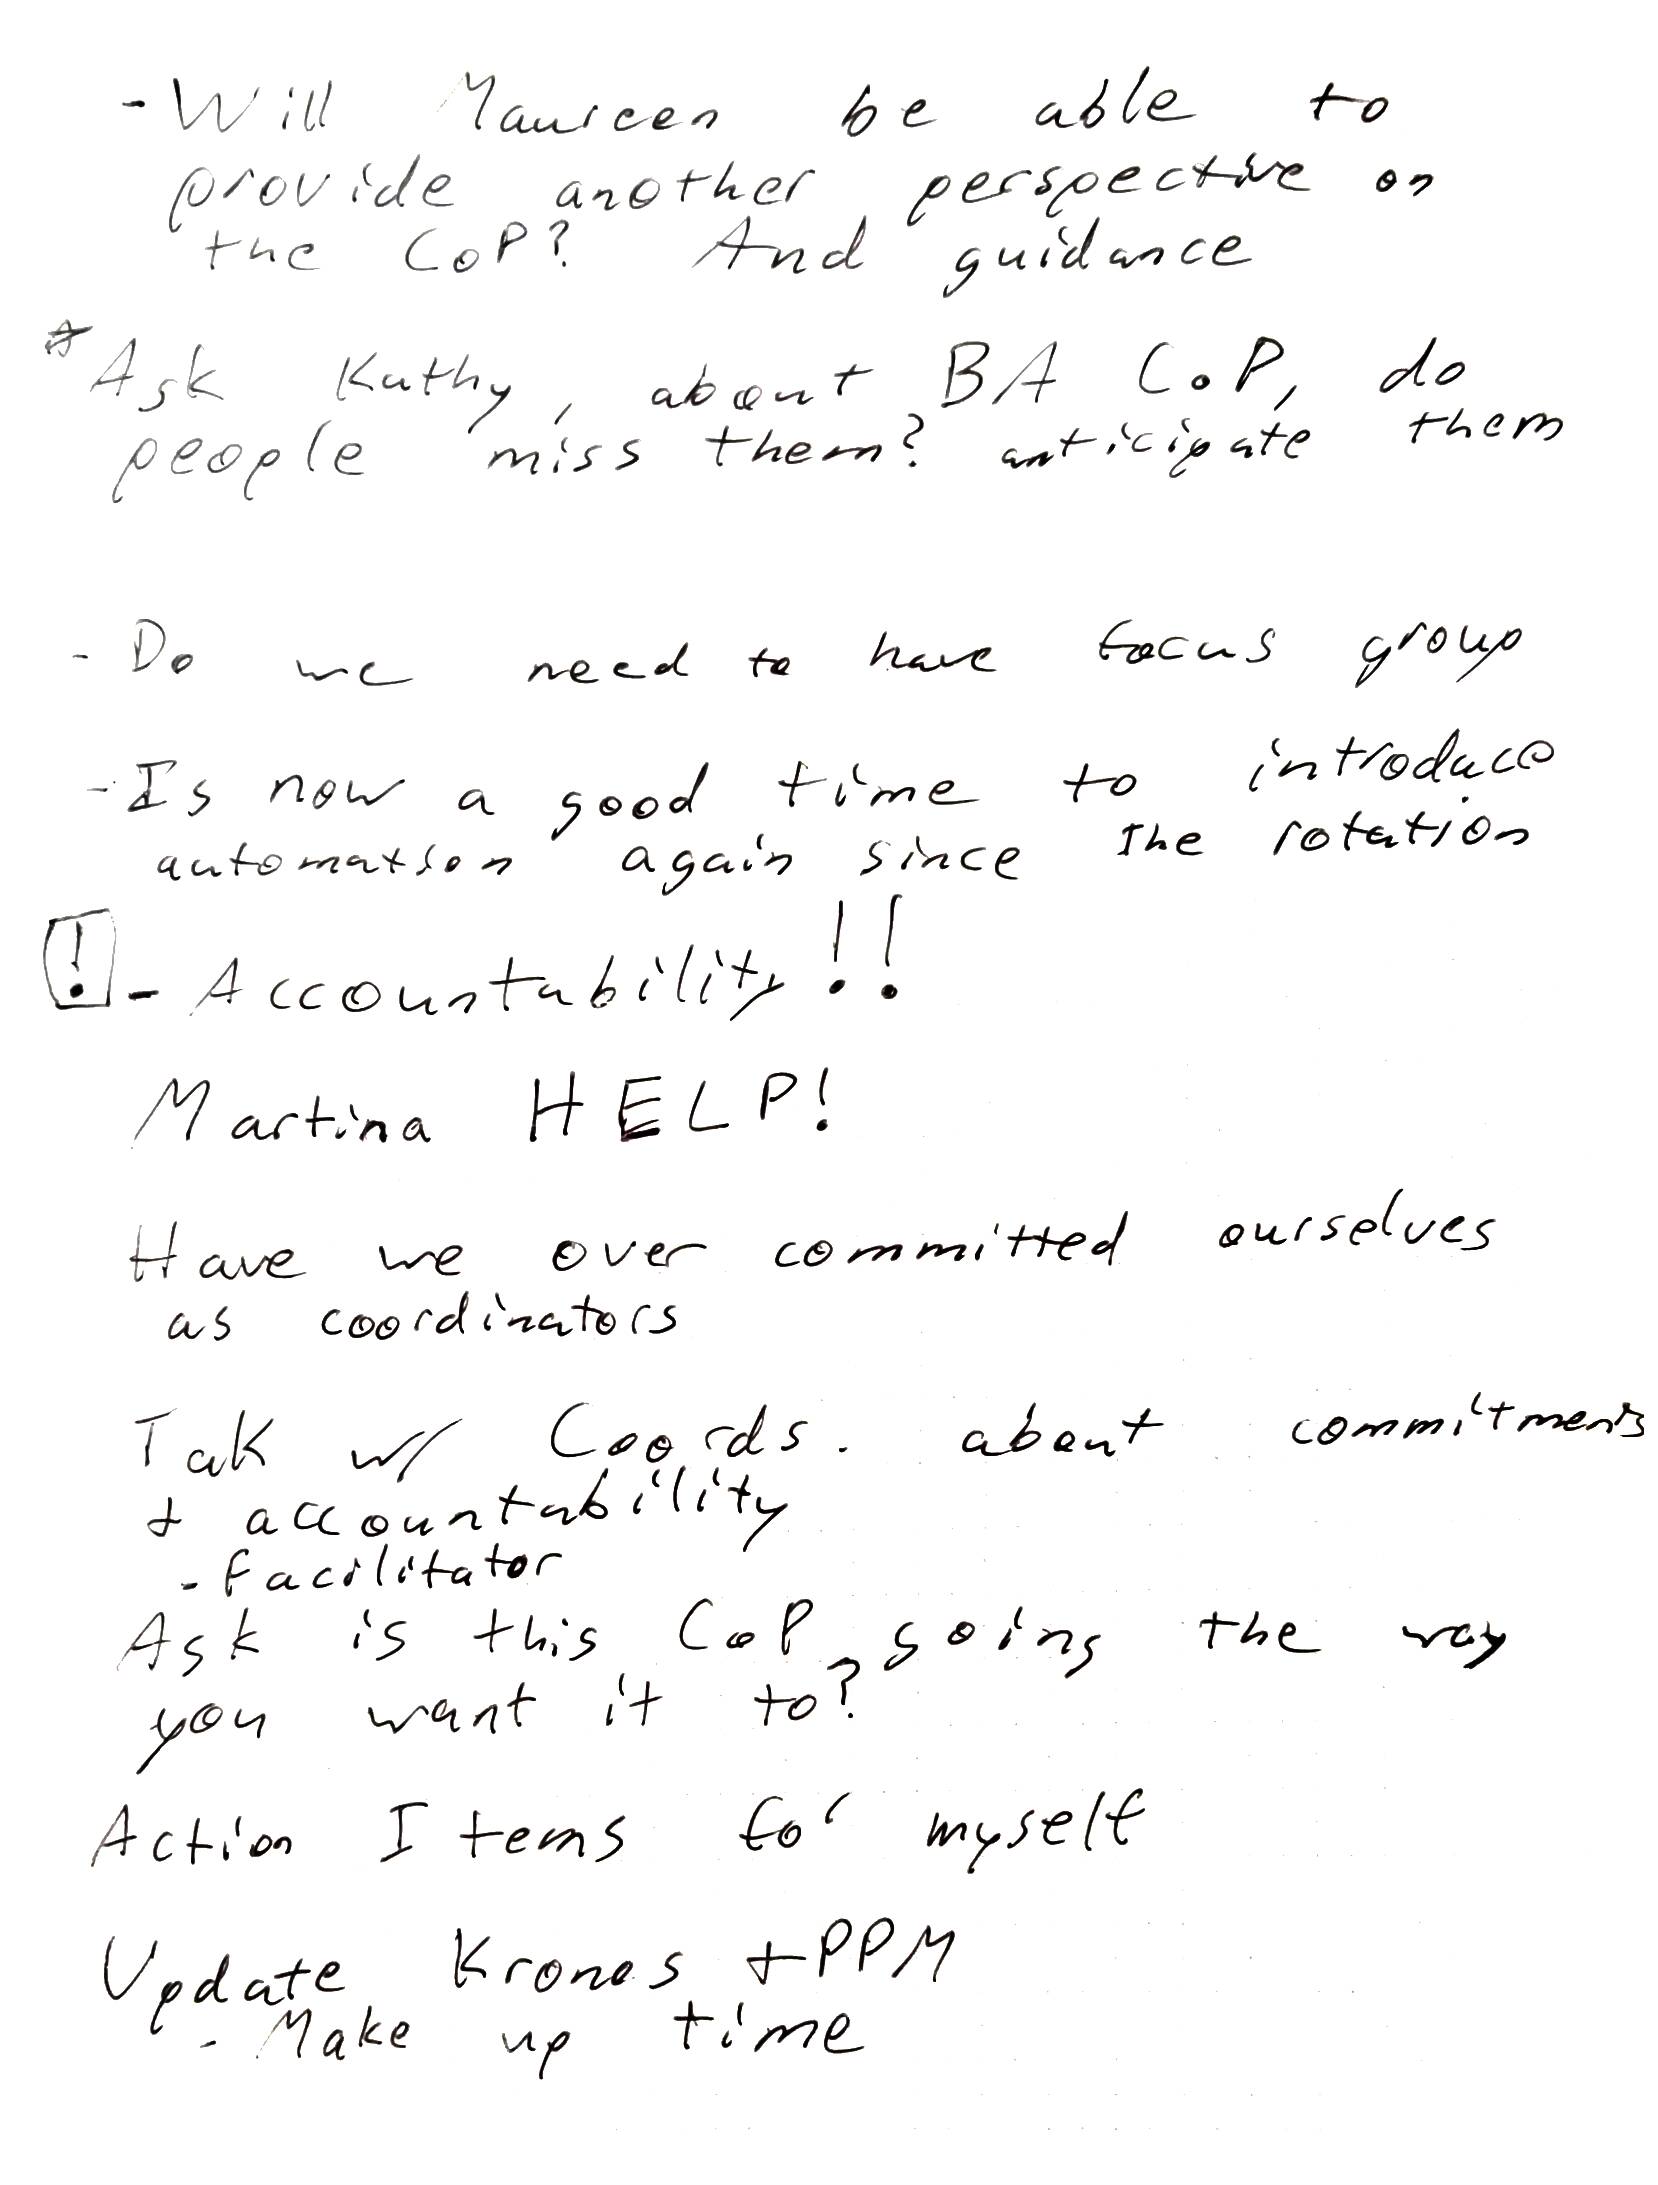 - Will Maureen be able to
provide another perspective on
the CoP? And guidance
* Ask Kathy, about BA CoP, do
people miss them? anticipate them
- Do we need to have focus group
- Is now a good time to introduce
automation again since the rotation
! - Accountability!!
Martina HELP!
Have we over committed ourselves
as coordinators
Tak w/ Coords. about commitments
+ accountability
- facilitator
Ask is this CoP going the way
you want it to?
Action Items for myself
Update Kronos + PPM
- Make up time